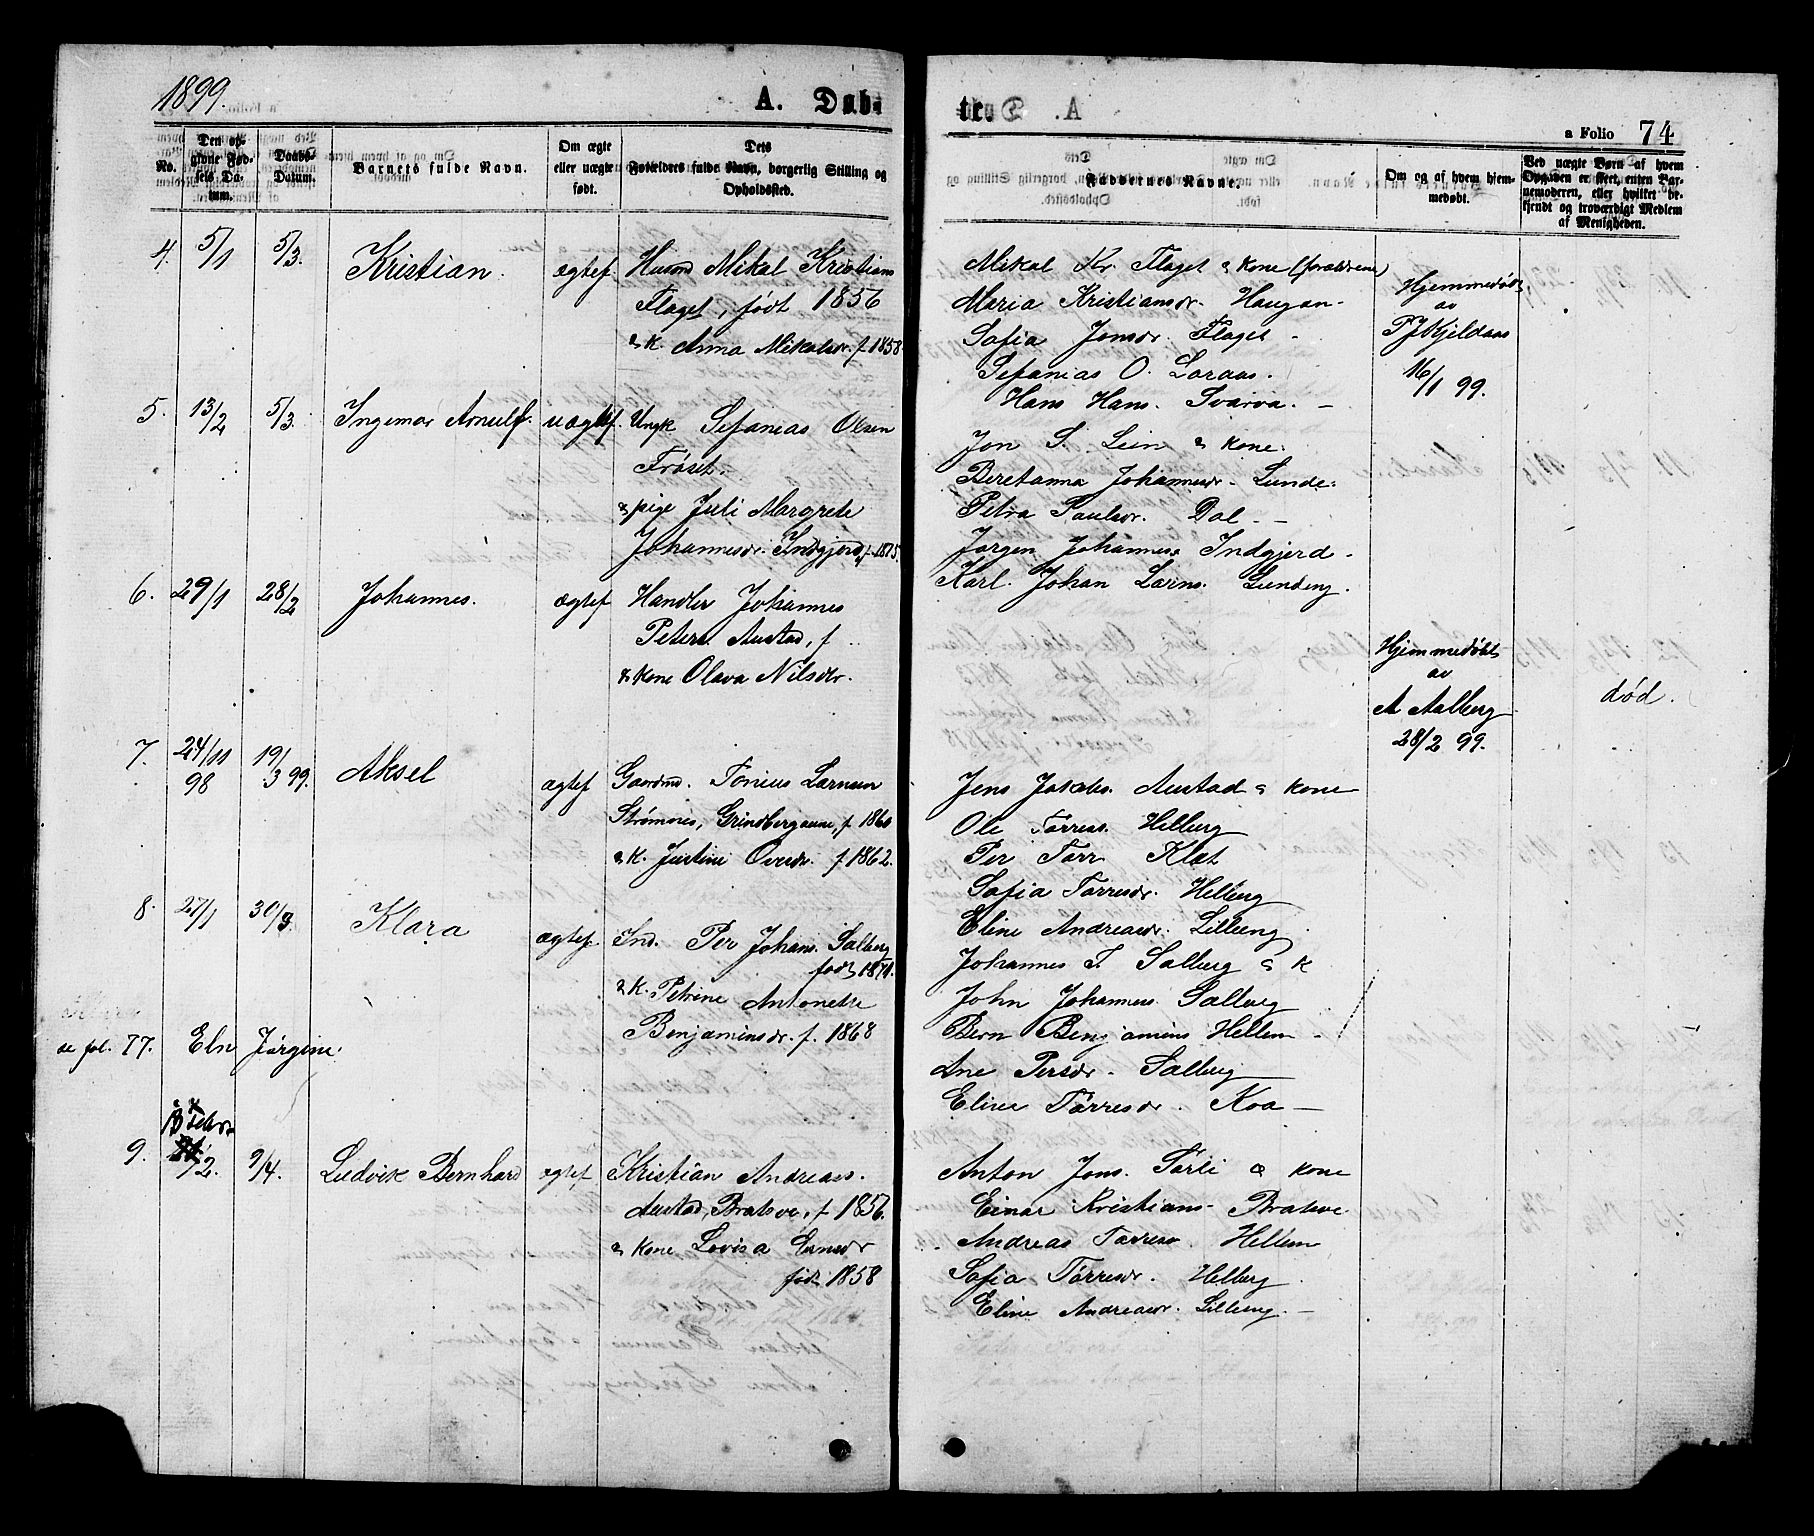 1899.
A. Døb-
te.
a Folio 74
No.
Den op-
givne Fød-
sels Da-
tum.
Daabs-
Datum.
Barnets fulde Navn.
Om ægte
eller uægte
født.
Dets
Forældres fulde Navn, borgerlig Stilling og
Opholdssted.
Faddernes Navne.
Om og af hvem hjem-
medøbt.
Ved uægte Børn af hvem
Opgaven er skeet, enten Bar-
nemoderen, eller hvilket be-
kjendt og troværdigt Medlem
af Menigheden.
4. 5/1 5/3. Kristian. ægtef.
Husmd Mikal Kristians
Flaget, født 1856
& k. Anna Mikalsdr. f. 1858.
Mikal Kr. Flaget & kone (forældrene)
Maria Kristiansdr. Haugan -
Sofia Jonsdr. Flaget -
Sefanias O. Loraas.
Hans Hans. Tvarva. -
Hjemmedøbt
av
P J Kjeldaas
16/1 99.
5. 13/2 5/3. Ingemar Arnulf. uægtef.
Ungk Sefanias Olsen
Frøset.
& pige Juli Margrete
Johannesdr. Indgjerd, f. 1875.
Jon S. Lein & kone.
Beretanna Johannesdr. Lunde.
Petra Paulsdr. Dal. -
Jørgen Johanness Indgjerd -
Karl Johan Larns. Gunderg.
6. 29/1 28/2 Johannes. ægtef
Handler Johannes
Peters. Austad, f ..
& kone Olava Nilsdtr.
Hjemmedøbt
av
A Aalberg
28/2 99.
død.
7. 24/11 98 19/3 99. Aksel ægtef
Gaardmd. Tonius Larnsen
Strømnes, Grindbergaune, f. 1860
& k. Justine Oversdr. f 1862.
Jens Jakobs. Austad & kone
Ole Tørress. Helberg
Per Tørr. Klet
Sofia Tørresdr. Helberg
Eline Andreasdr. Lilleeng.
8. 27/1 30/3. Klara ægtef.
Ind. Per Johans. Salberg
født 1871.
& k. Petrine Antonette
Benjaminsdr. f. 1868
Johannes T. Salberg & k
John Johannes. Salberg
Bern Benjamins Hellem -
Ane Persdr. Salberg
Eline Tørresdr. Koa -
se fol. 77. Eln Jørgine.
9. /2. 9/4. Ludvik Bernhard ægtef
Kristian Andreass.
Austad, Bratsve, f 1856.
& kone Lovisa Larnsdr
født 1858
Anton Jons. Tørli & kone
Einar Kristians - Bratsve
Andreas Tørress. Hellem
Sofia Tørresdr. Helberg.
Eline Andreasdr. Lilleeng. -